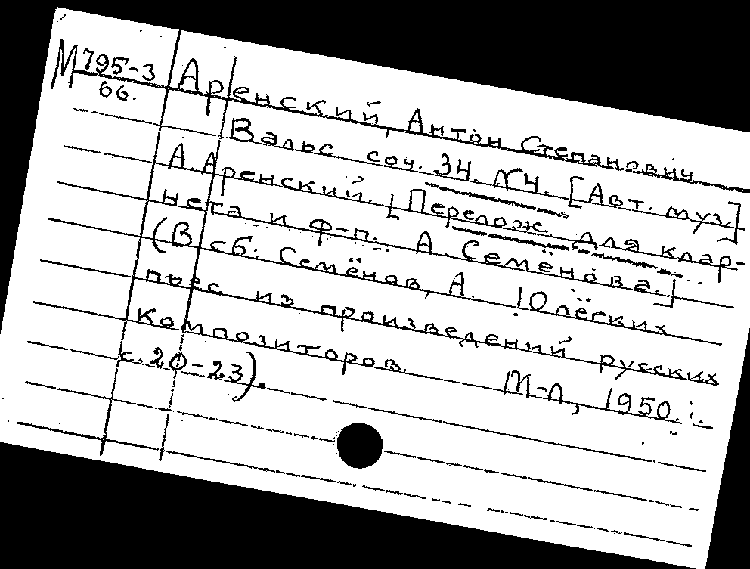 М 795-3
66.
Аренский, Антон Степанович
Вальс соч. 34. №4. [Авт. муз.]
А. Аренский. [Перелож. для клар-
нета и ф-п. А. Семёнова.]
(В сб. Семёнов, А. 10 лёгких
пьес из произведений русских
композиторов. М-Л, 1950.
с. 20-23).